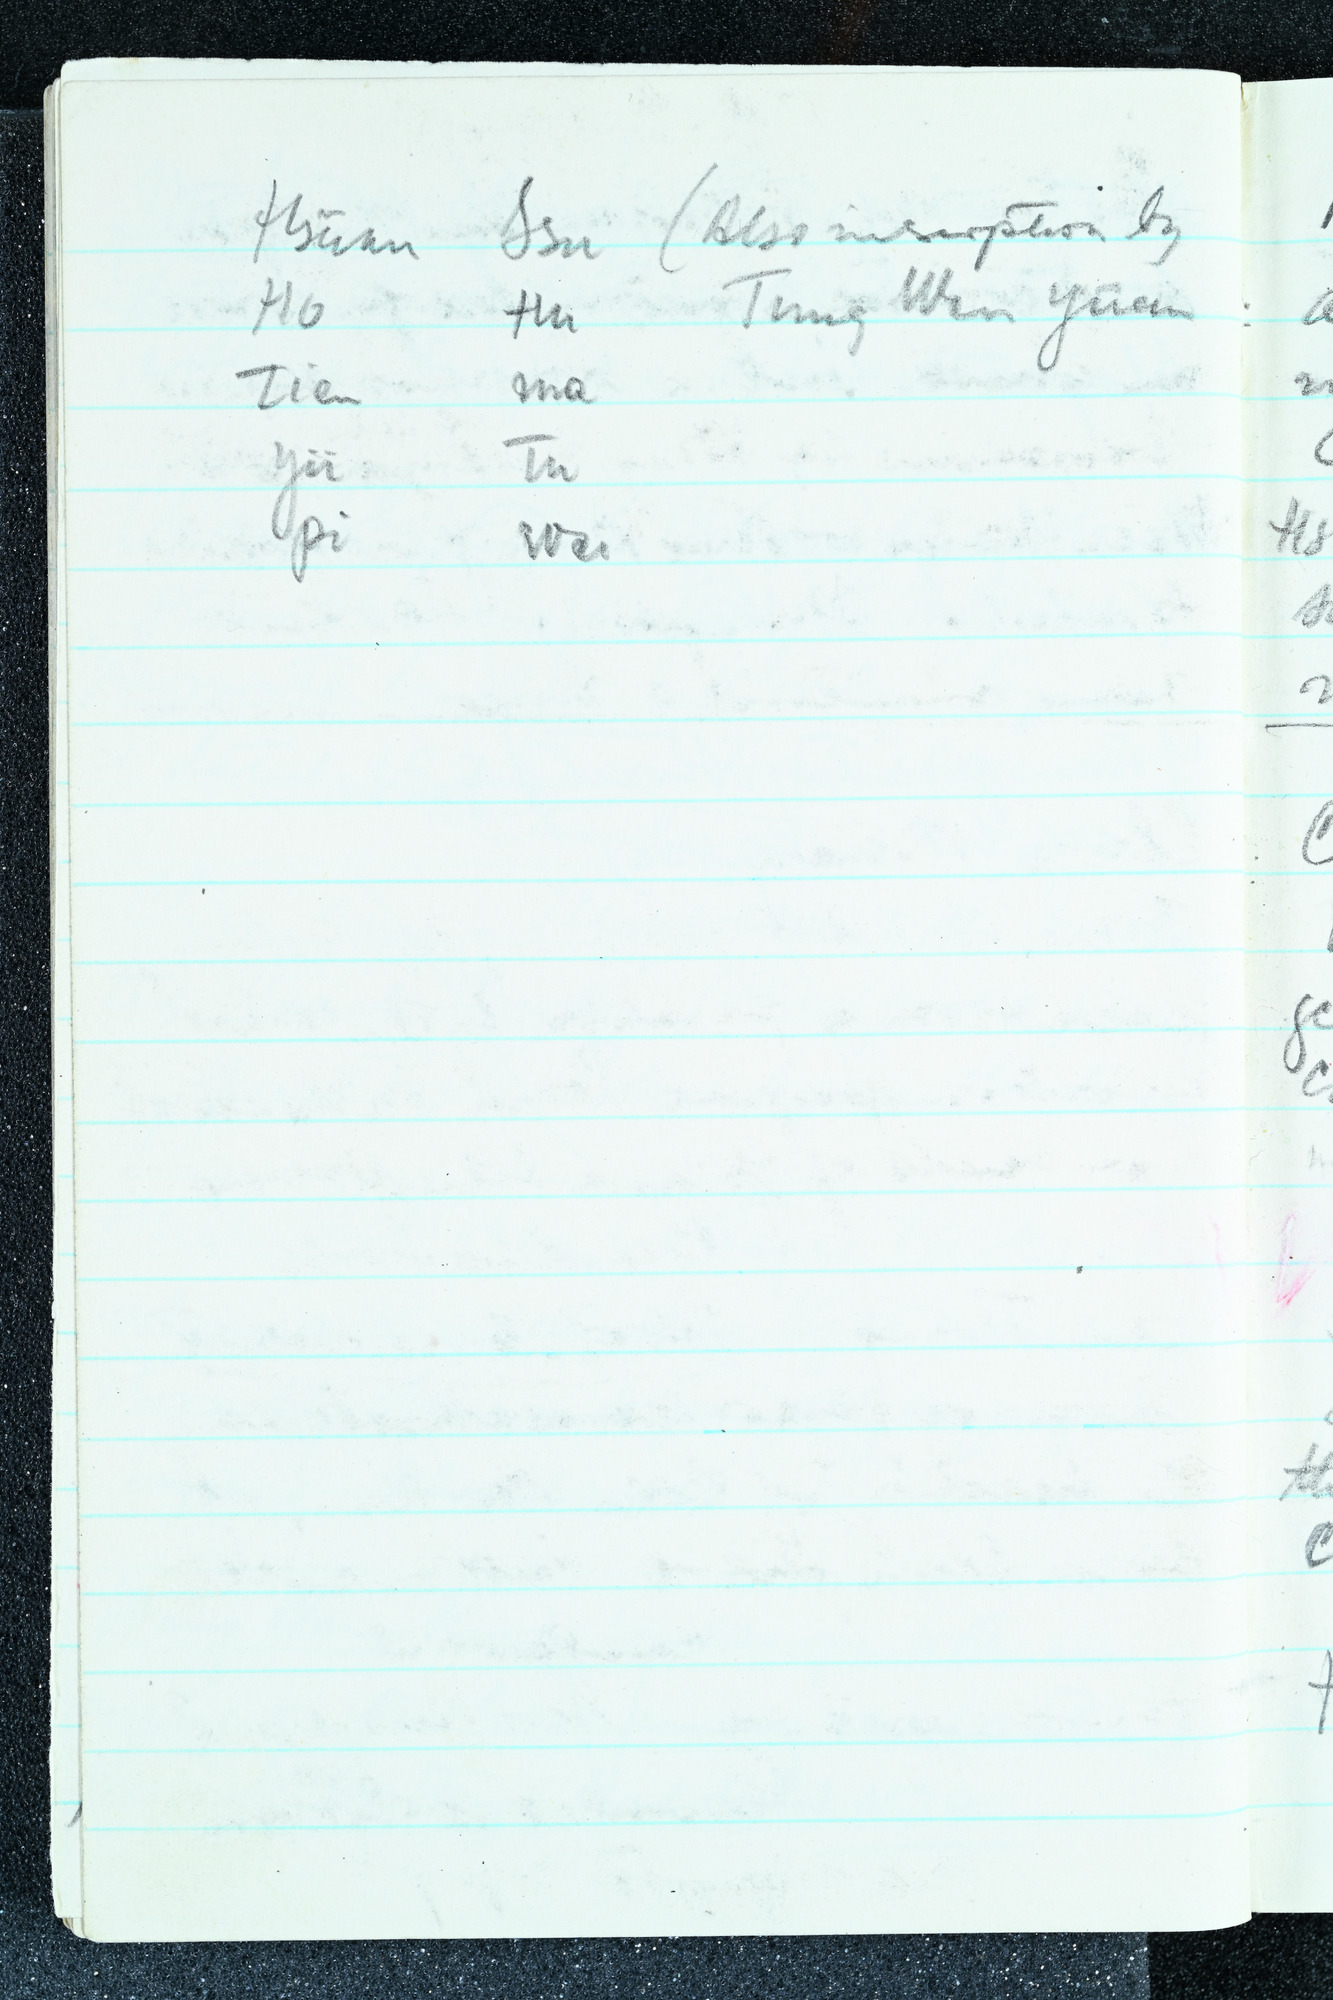 Hsüan Ssu (Also inscription by
Ho Hu Tung Wen Yüan
Tien ma
Yü Tu
pi wai